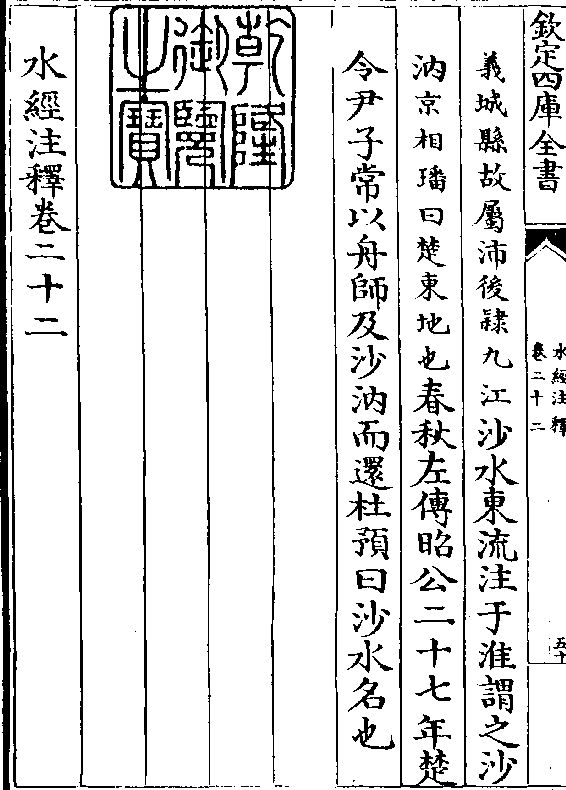 欽定四庫全書
水經注釋
卷二十二
五十
義城縣故屬沛後隷九江沙水東流注于淮謂之沙
汭京相璠曰楚東地也春秋左傳昭公二十七年楚
令尹子常以舟師及沙汭而還杜預曰沙水名也
乾隆
御覽
之寶
水經注釋卷二十二